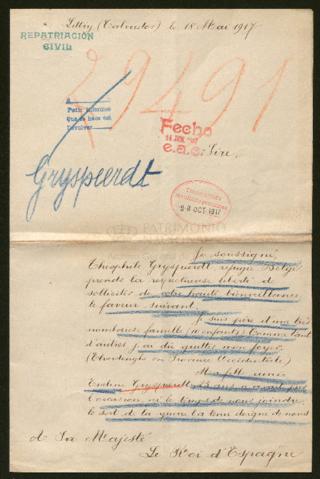 (Calvados) le 18 Mai 1917
REPATRIACION
CIVIL
29491
Pedir informes
Que se hace con
Devolver
Fecho
e.a.
Sire,
Gryspeerdt
PATRIMONIO
Je soussigné,
Théophile Gryspeerdt, réfugié Belge
prends la respectueuse liberté de
solliciter de votre haute bienveillance
la faveur suivante
Je suis père d'une très
nombreuse famille (10 enfants) Comme tant
d'autres j'ai du quitter mon foyer
en Province Occidentale)
Ma fille
Gryspeerdt
l'occasion ni le temps de nous joindre,
le sort de la guerre la tenu éloigné de nous
A Sa Majesté
Le Roi d'Espagne